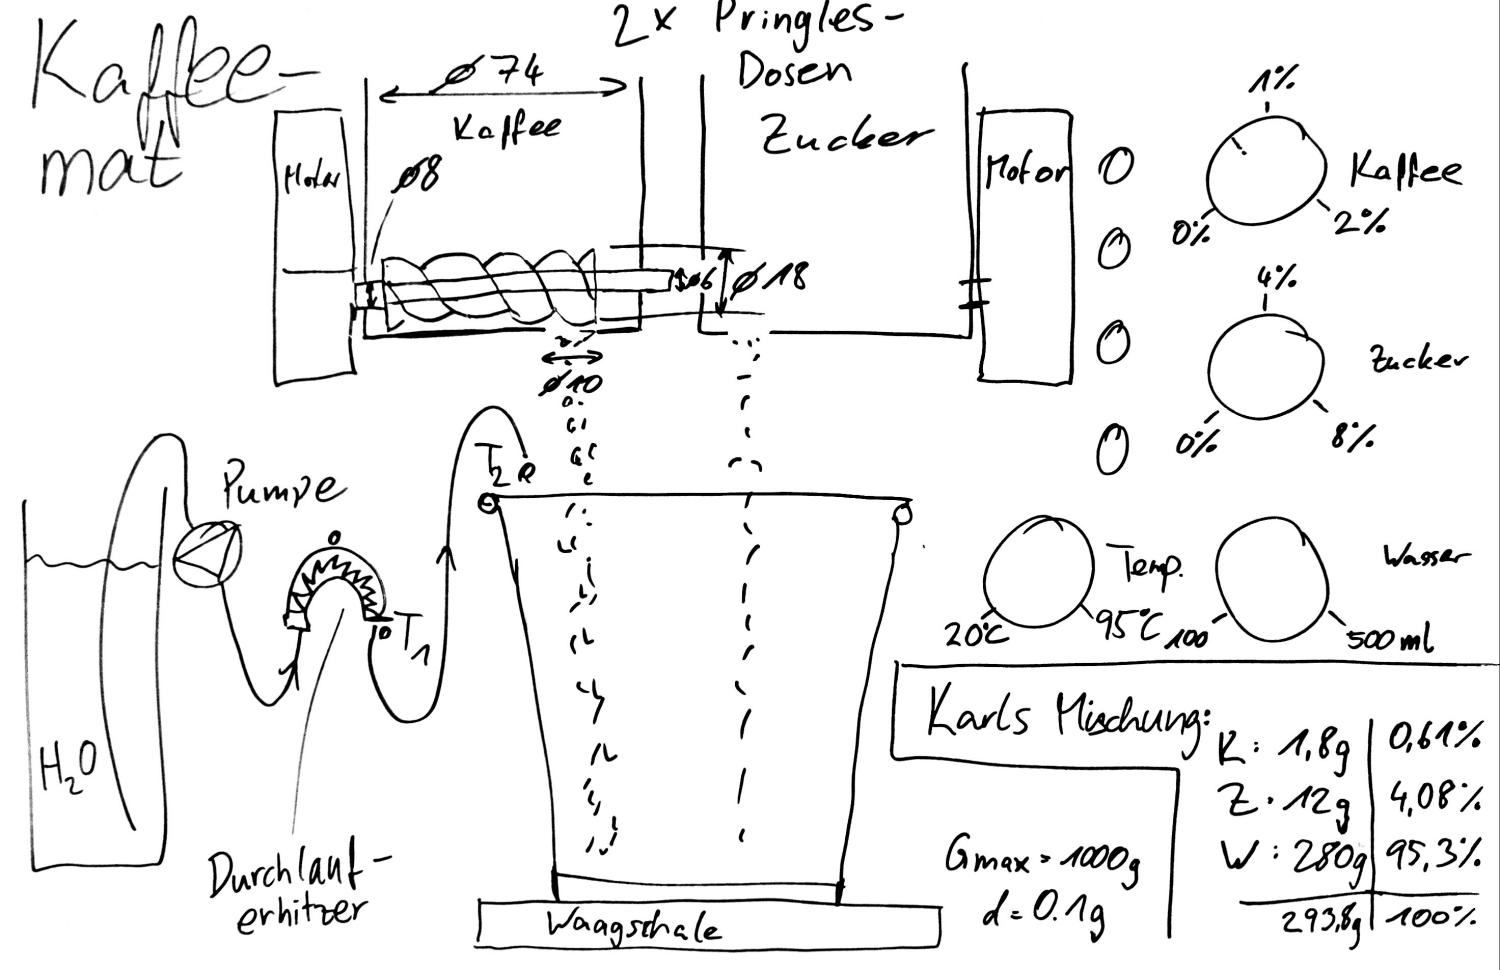 Kaffee-
mat
2x Pringles-
Dosen
ø 74
Kaffee
Zucker
Motor
ø8
ø6
ø 18
ø10
Motor
1%
Kaffee
0%
2%
4%
Zucker
0%
8%
Pumpe
T2
T1
H2O
Durchlauf-
erhitzer
Waagschale
Temp.
20°C
95°C
Wasser
100
500 ml
Karls Mischung:
K: 1,8g 0,61%
Z: 12g 4,08%
W: 280g 95,3%
293,8g 100%
Gmax = 1000g
d = 0.1g